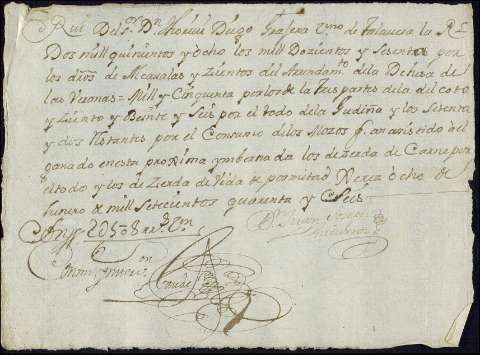 Del Sr. Dn. Diego Grajera Vzno. de Talavera la Rl.
Dos mill quinientos y ocho los mill Dozientos y Sesenta por
los dros de Alcavalas y Zientos del Arrendamto. de la Dehesa de
las Veronas = Mill y Cinquenta por los de la tres partes de la del coto
y Ziento y Beinte y Seis por el todo de la Judina y los Setenta
y dos Restantes por el Consumo de los Mozos q. an asistido al
ganado en esta proxima ymbernada los de Zerda de Carne por
el todo y los de Zierda de Vida de por mitad Xerez ocho de
henero de mill Setecientos quarenta y Seis
Son 2U508 rs. Vn